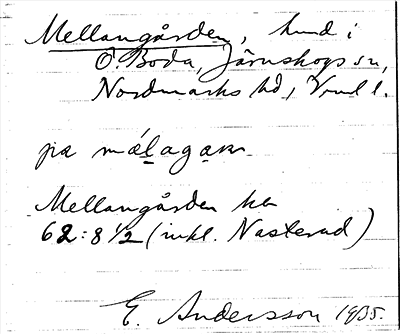 Mellangården, hmd i
Ö. Boda, Järnskogs sn,
Nordmarks hd, Vrml l.
pa
Mellangården ha
62:8 1/2 (inkl. Nasterud)
E. Andersson 1905.